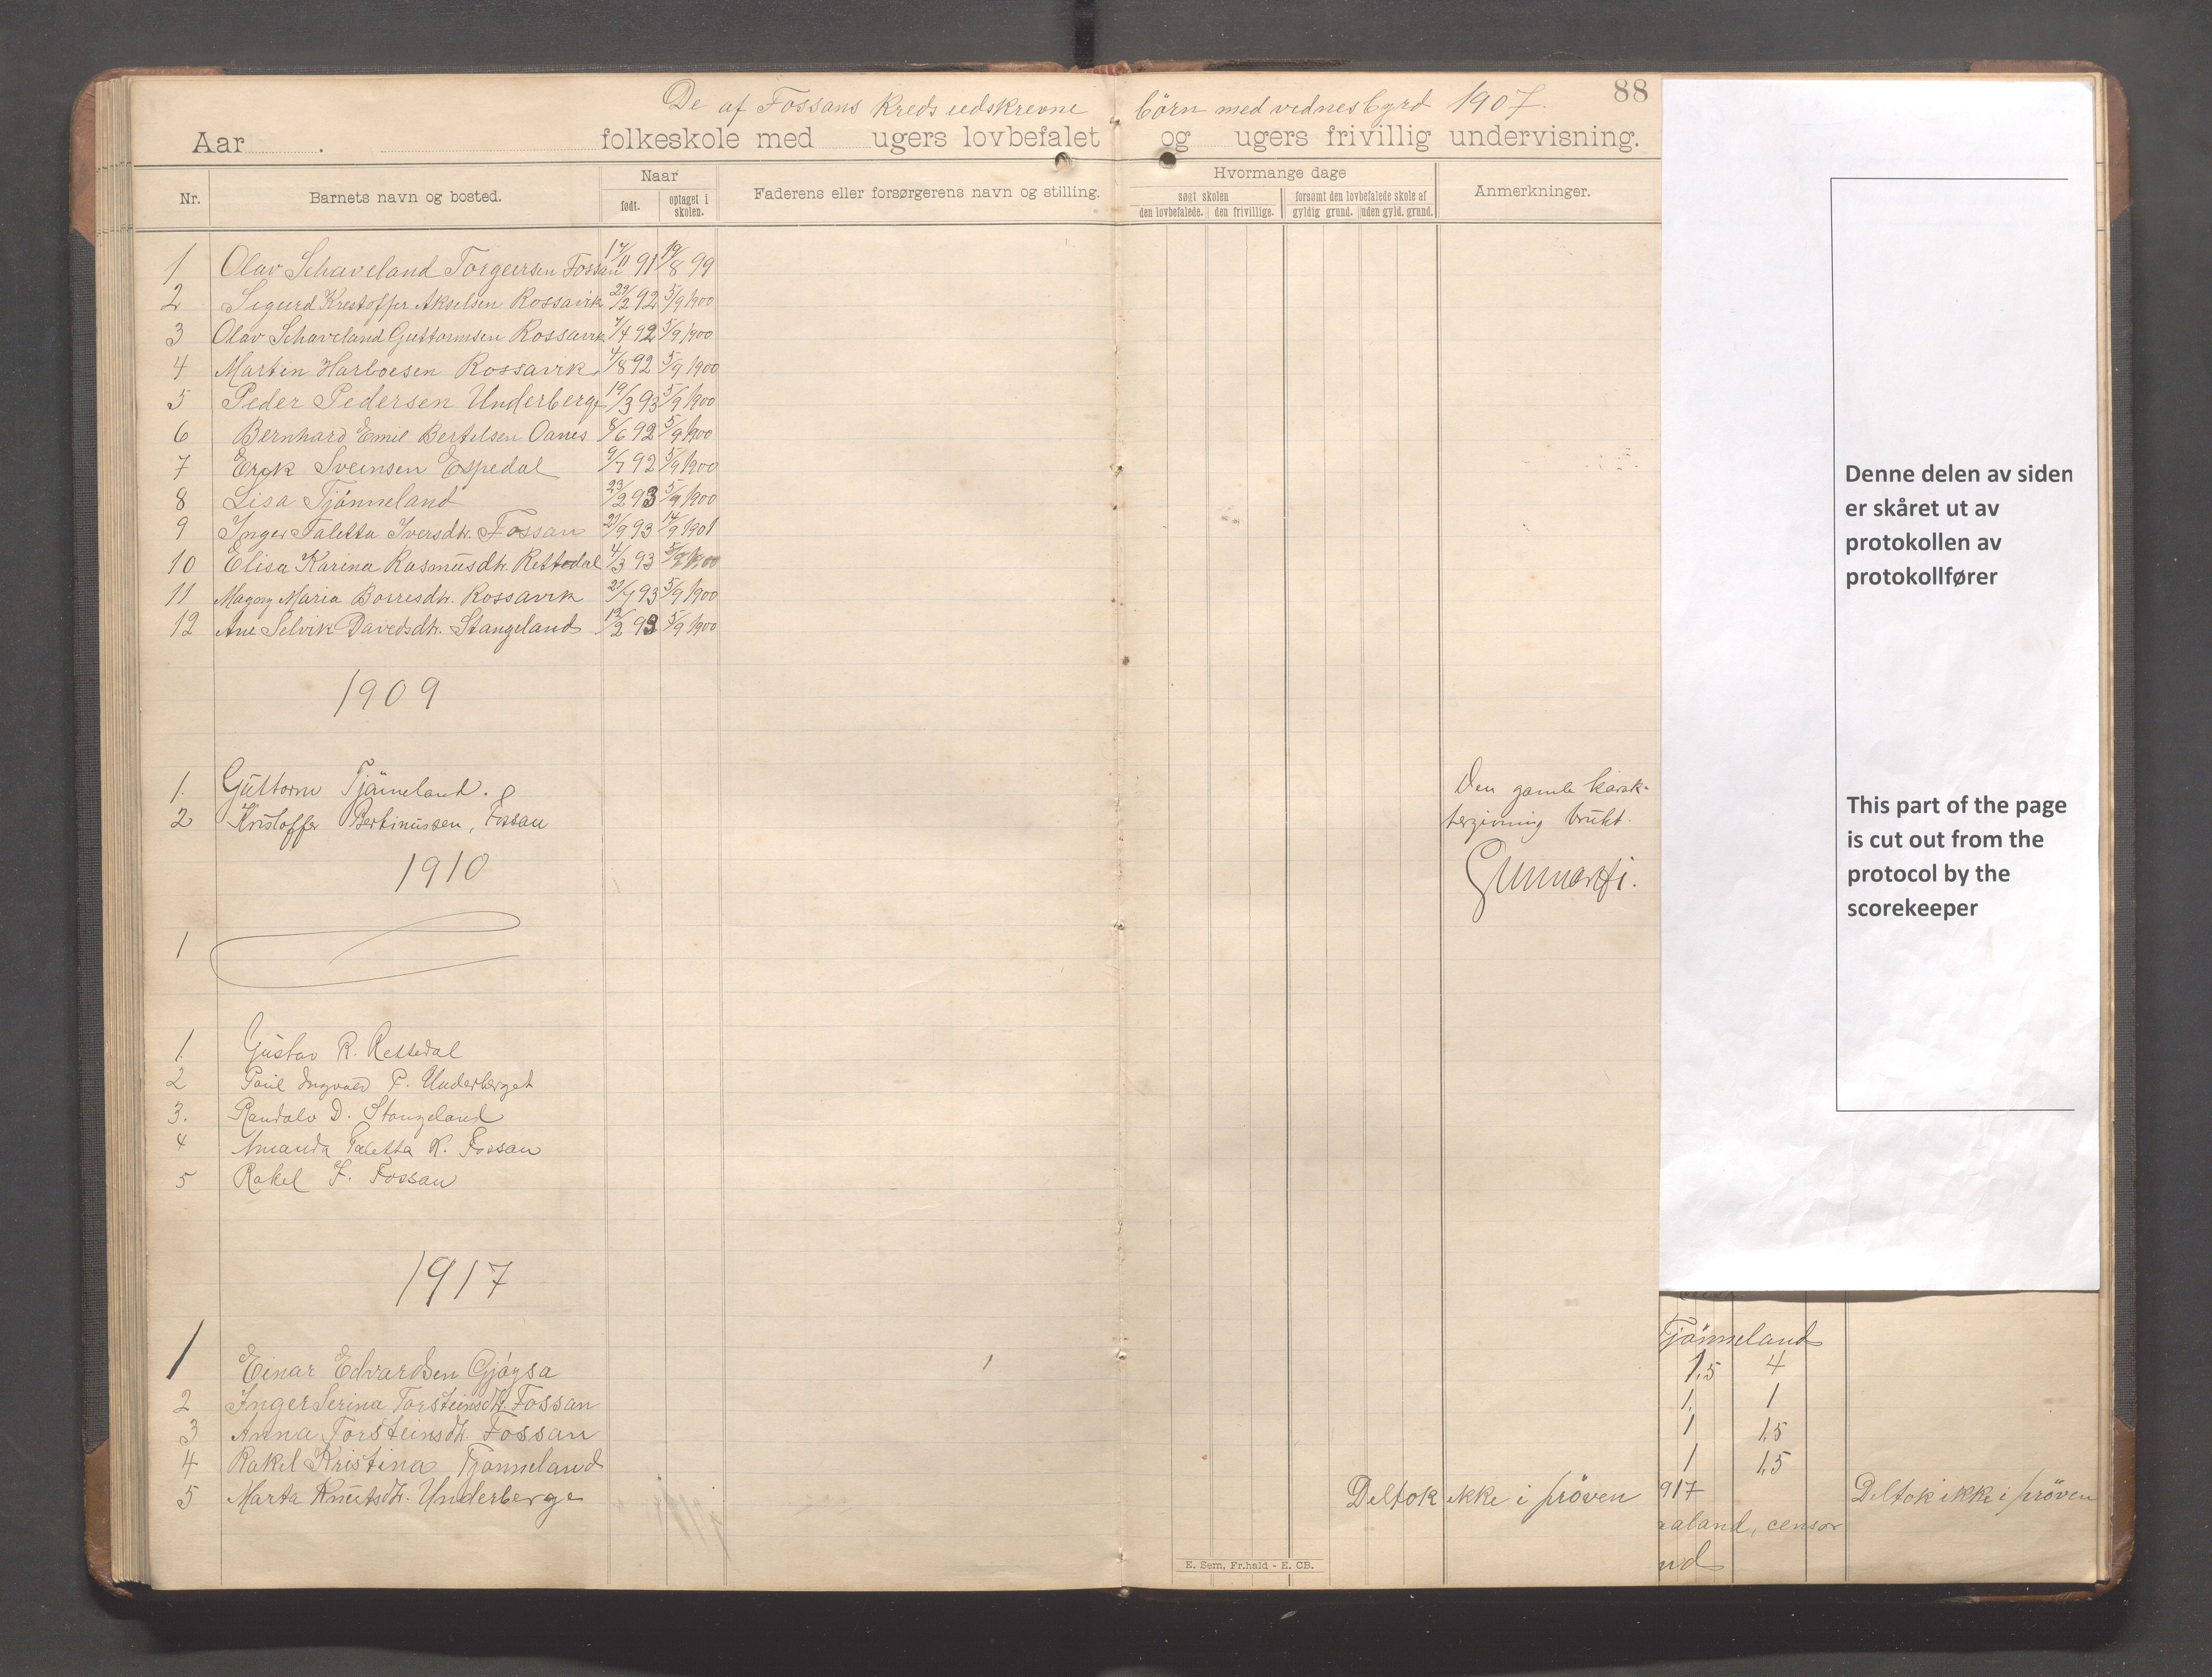 88
De af Fossans Kreds udskrevne børn med vidnesbyrd 1907.
Aar . folkeskole med ugers lovbefalet og ugers frivillig undervisning.
Nr. Barnets navn og bosted. Naar Faderens eller forsørgerens navn og stilling. Hvormange dage Anmerkninger.
født. optaget i skolen. søgt skolen forsømt den lovbefalede skole af
den lovbefalede. den frivillige. gyldig grund. uden gyld. grund.
1 Olav Schaveland Torgersen Fossan 17/11 91 19/8 99
2 Sigurd Krestoffer Akselsen Rossavik 29/2 92 5/9 1900
3 Olav Schaveland Guttormsen Rossavik 7/4 92 5/9 1900
4 Martin Harboesen Rossavik 4/8 92 5/9 1900
5 Peder Pedersen Underberge 19/3 93 5/9 1900
6 Bernhard Emil Bertelsen Oanes 8/6 92 5/9 1900
7 Erik Sveinsen Espedal 9/7 92 5/9 1900
8 Lisa Tjønneland 23/2 93 5/9 1900
9 Inger Taletta Iversdtr. Fossan 23/9 93 14/9 1901
10 Elisa Karina Rasmusdtr. Rettedal 4/3 93 5/9 1900
11 Maria Borresdtr. Rossavik 93 5/9 1900
12 Ane Selvik Davedsdtr. Stangeland 19/2 93 5/9 1900
1909
1. Guttorm Tjønneland. Den gamle karak-
2 Kristoffer Bertinussen, Fossan tergivning brukt.
1910
1
1. Gustav R. Rettedal
2 Paul Ingvald P. Underberget
3. Randalv D. Stangeland
4 Amanda Taletta R. Fossan
5 Rakel I. Fossan
1917
1 Einar Edvardsen Gjøysa 1
2 Inger Serina Torsteinsdtr. Fossan
3 Anna Torsteinsdtr. Fossan
4 Rakel Kristina Tjønneland
5 Marta Knutsdtr. Underberge Deltok ikke i prøven
E. Sem, Fr.hald - E. CB.
Denne delen av siden
er skåret ut av
protokollen av
protokollfører
This part of the page
is cut out from the
protocol by the
scorekeeper
Tjønneland
1,5 4
1, 1
1 1,5
1 1,5
917 Deltok ikke i prøven
aaland, censor
nd